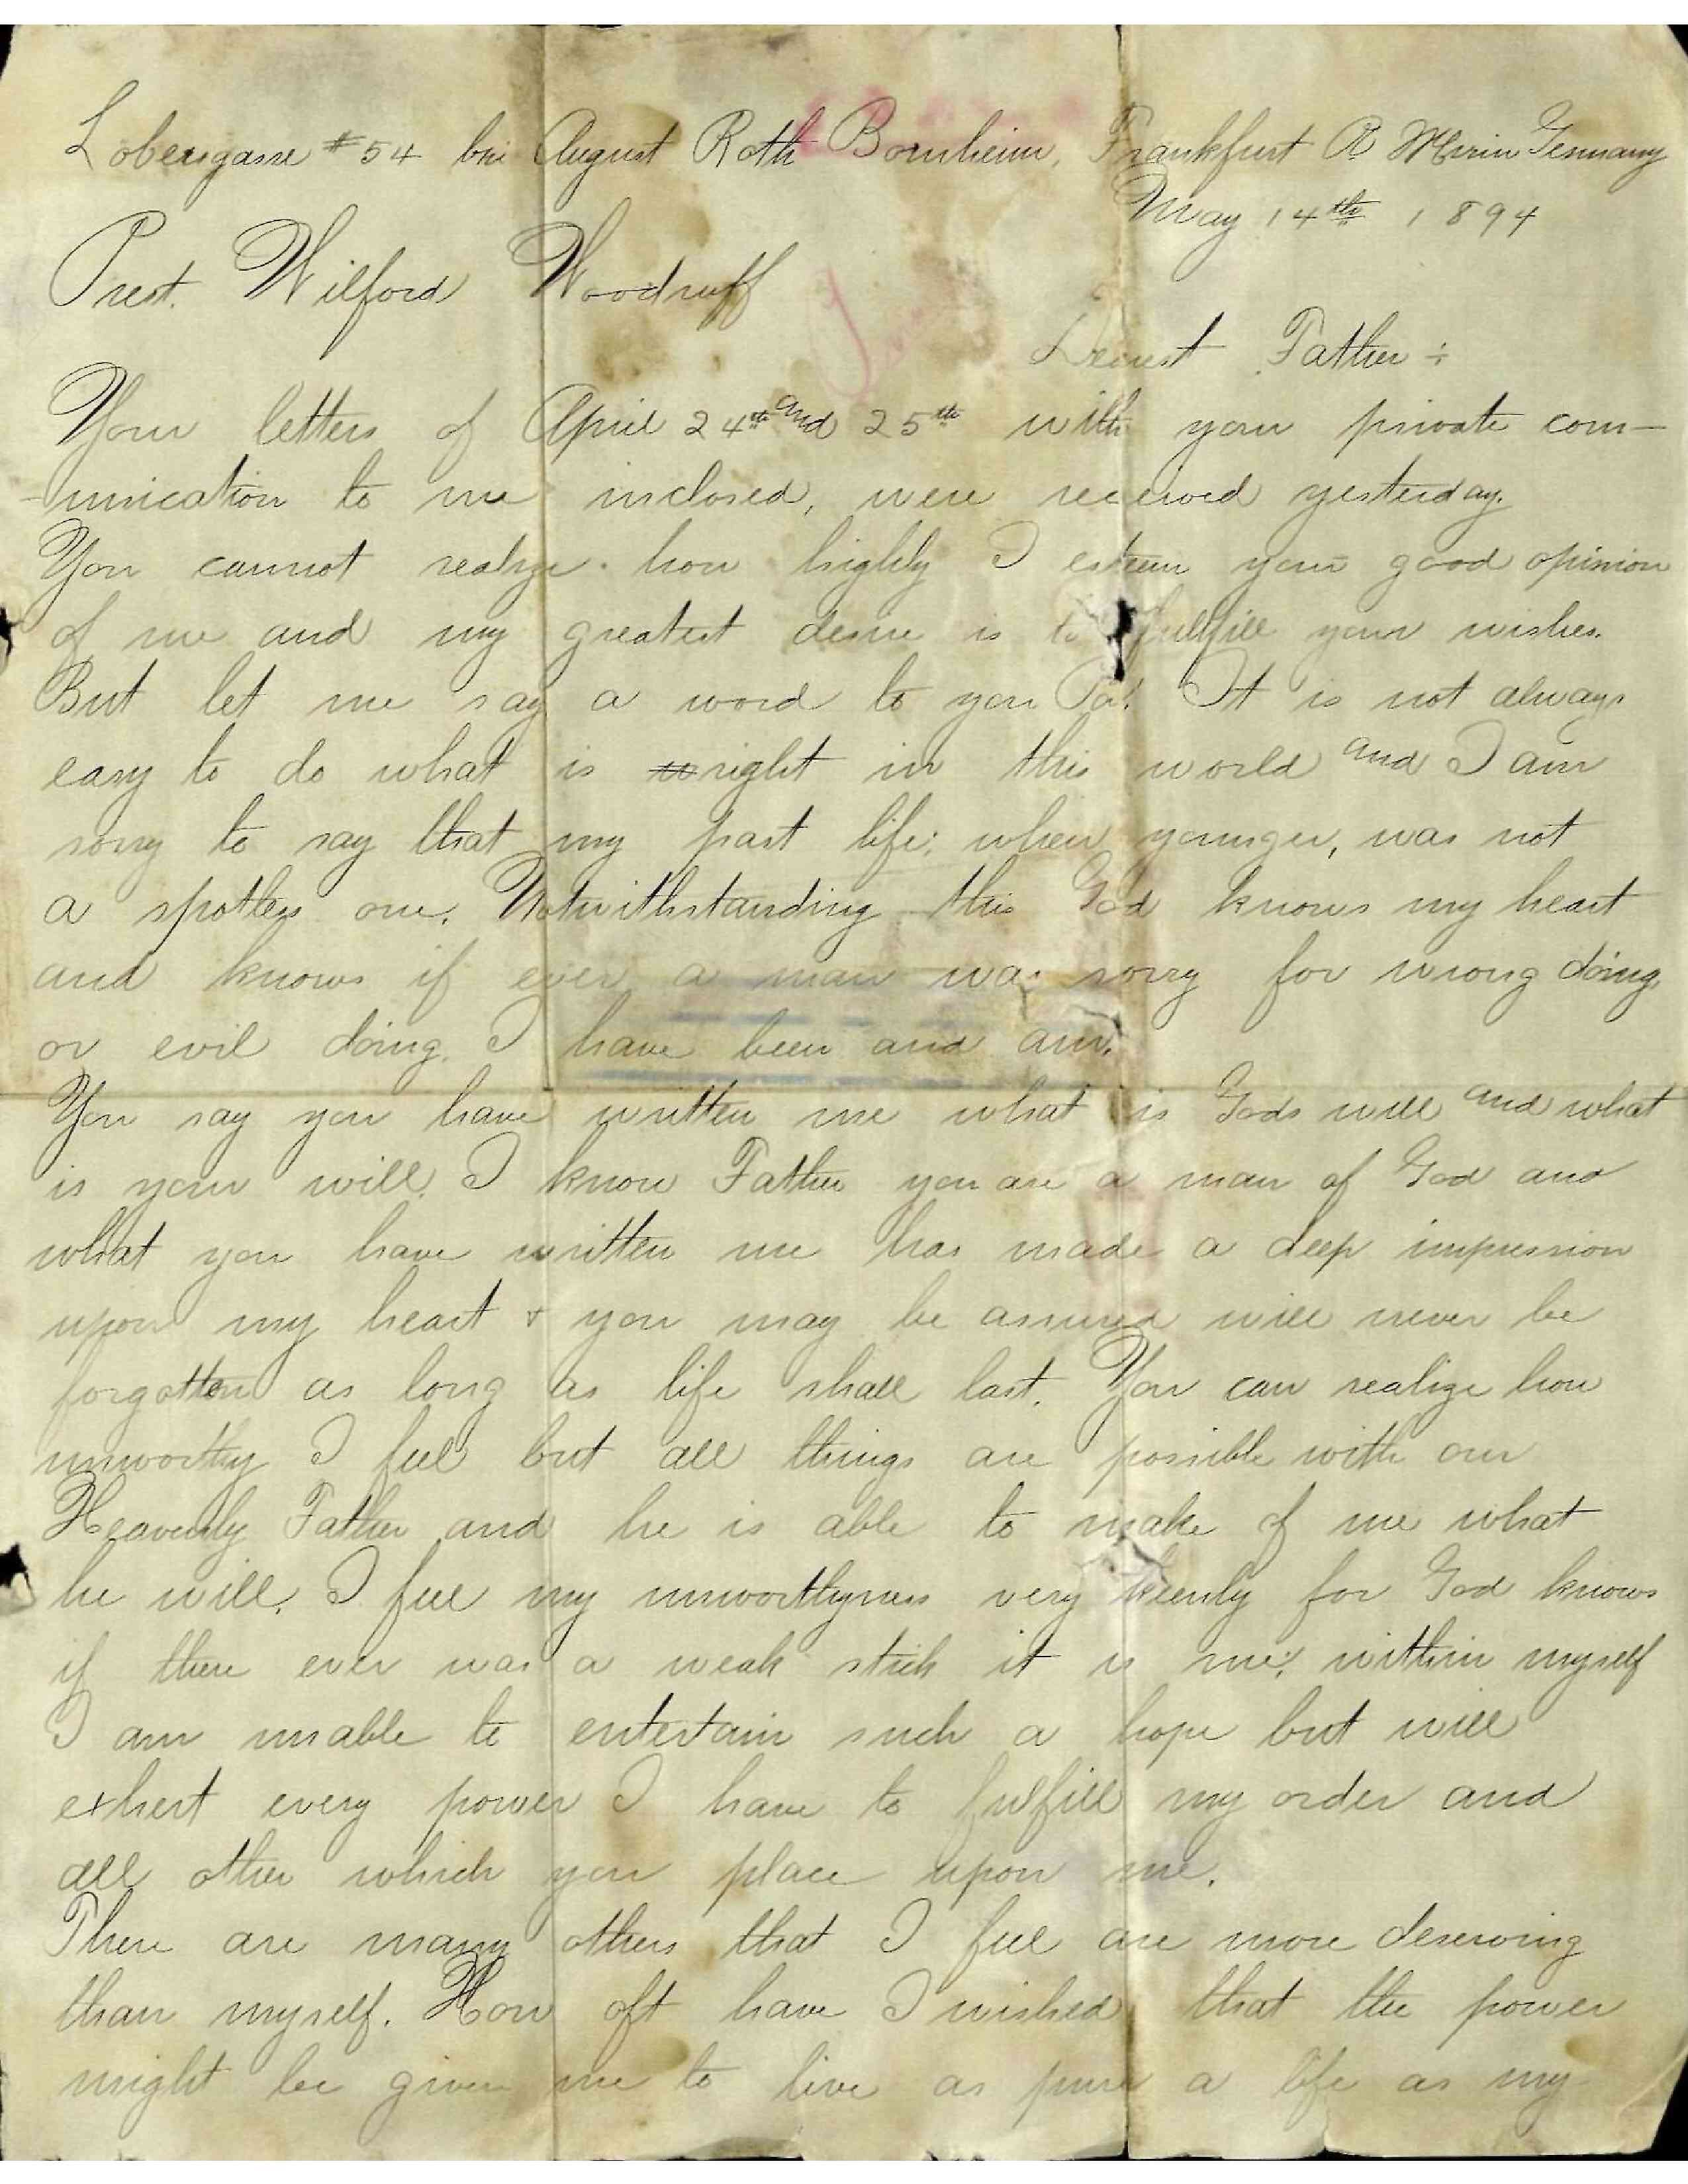 Lobersgasse #54 bei August Roth Bornheim, Frankfurt A Main Germany
May 14th 1894
Prest. Wilford Woodruff
Dearest Father:
Your letters of April 24th and 25th with your private com-
-munication to me inclosed, were received yesterday.
You cannot realize how highly I esteem your good opinion
of me and my greatest desire is to fullfill your wishes.
But let me say a word to you Pa! It is not always
easy to do what is right in this world and I am
sorry to say that my past life; when younger, was not
a spotless one. Notwithstanding this God knows my heart
and knows if ever a man was sorry for wrong doing,
or evil doing, I have been and am.
You say you have written me what is Gods will and what
is your will. I know Father you are a man of God and
what you have written me has made a deep impression
upon my heart & you may be assured will never be
forgotten as long as life shall last. You can realize how
unworthy I feel but all things are possible with our
Heavenly Father and he is able to make of me what
he will. I feel my unworthyness very keenly for God knows
if there ever was a weak stick it is me; within myself
I am unable to entertain such a hope but will
exhert every power I have to fulfill my order and
all other which you place upon me.
There are many others that I feel are more deserving
than myself. How oft have I wished that the power
might be given me to live as pure a life as my